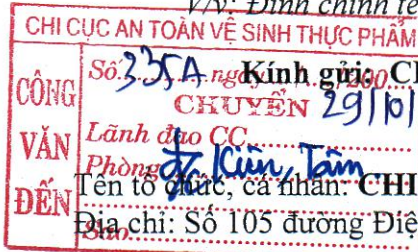 V/v: Đính chính tê
CHI CỤC AN TOÀN VỆ SINH THỰC PHẨM
CÔNG VĂN ĐẾN
Số 335A ngày 200
Kính gửi: C
CHUYỂN 29/10/
Lãnh đạo CC
Phòng đ/c Kiên, Tâm
Tên tổ chức, cá nhân: CHI
Địa chỉ: Số 105 đường Điê